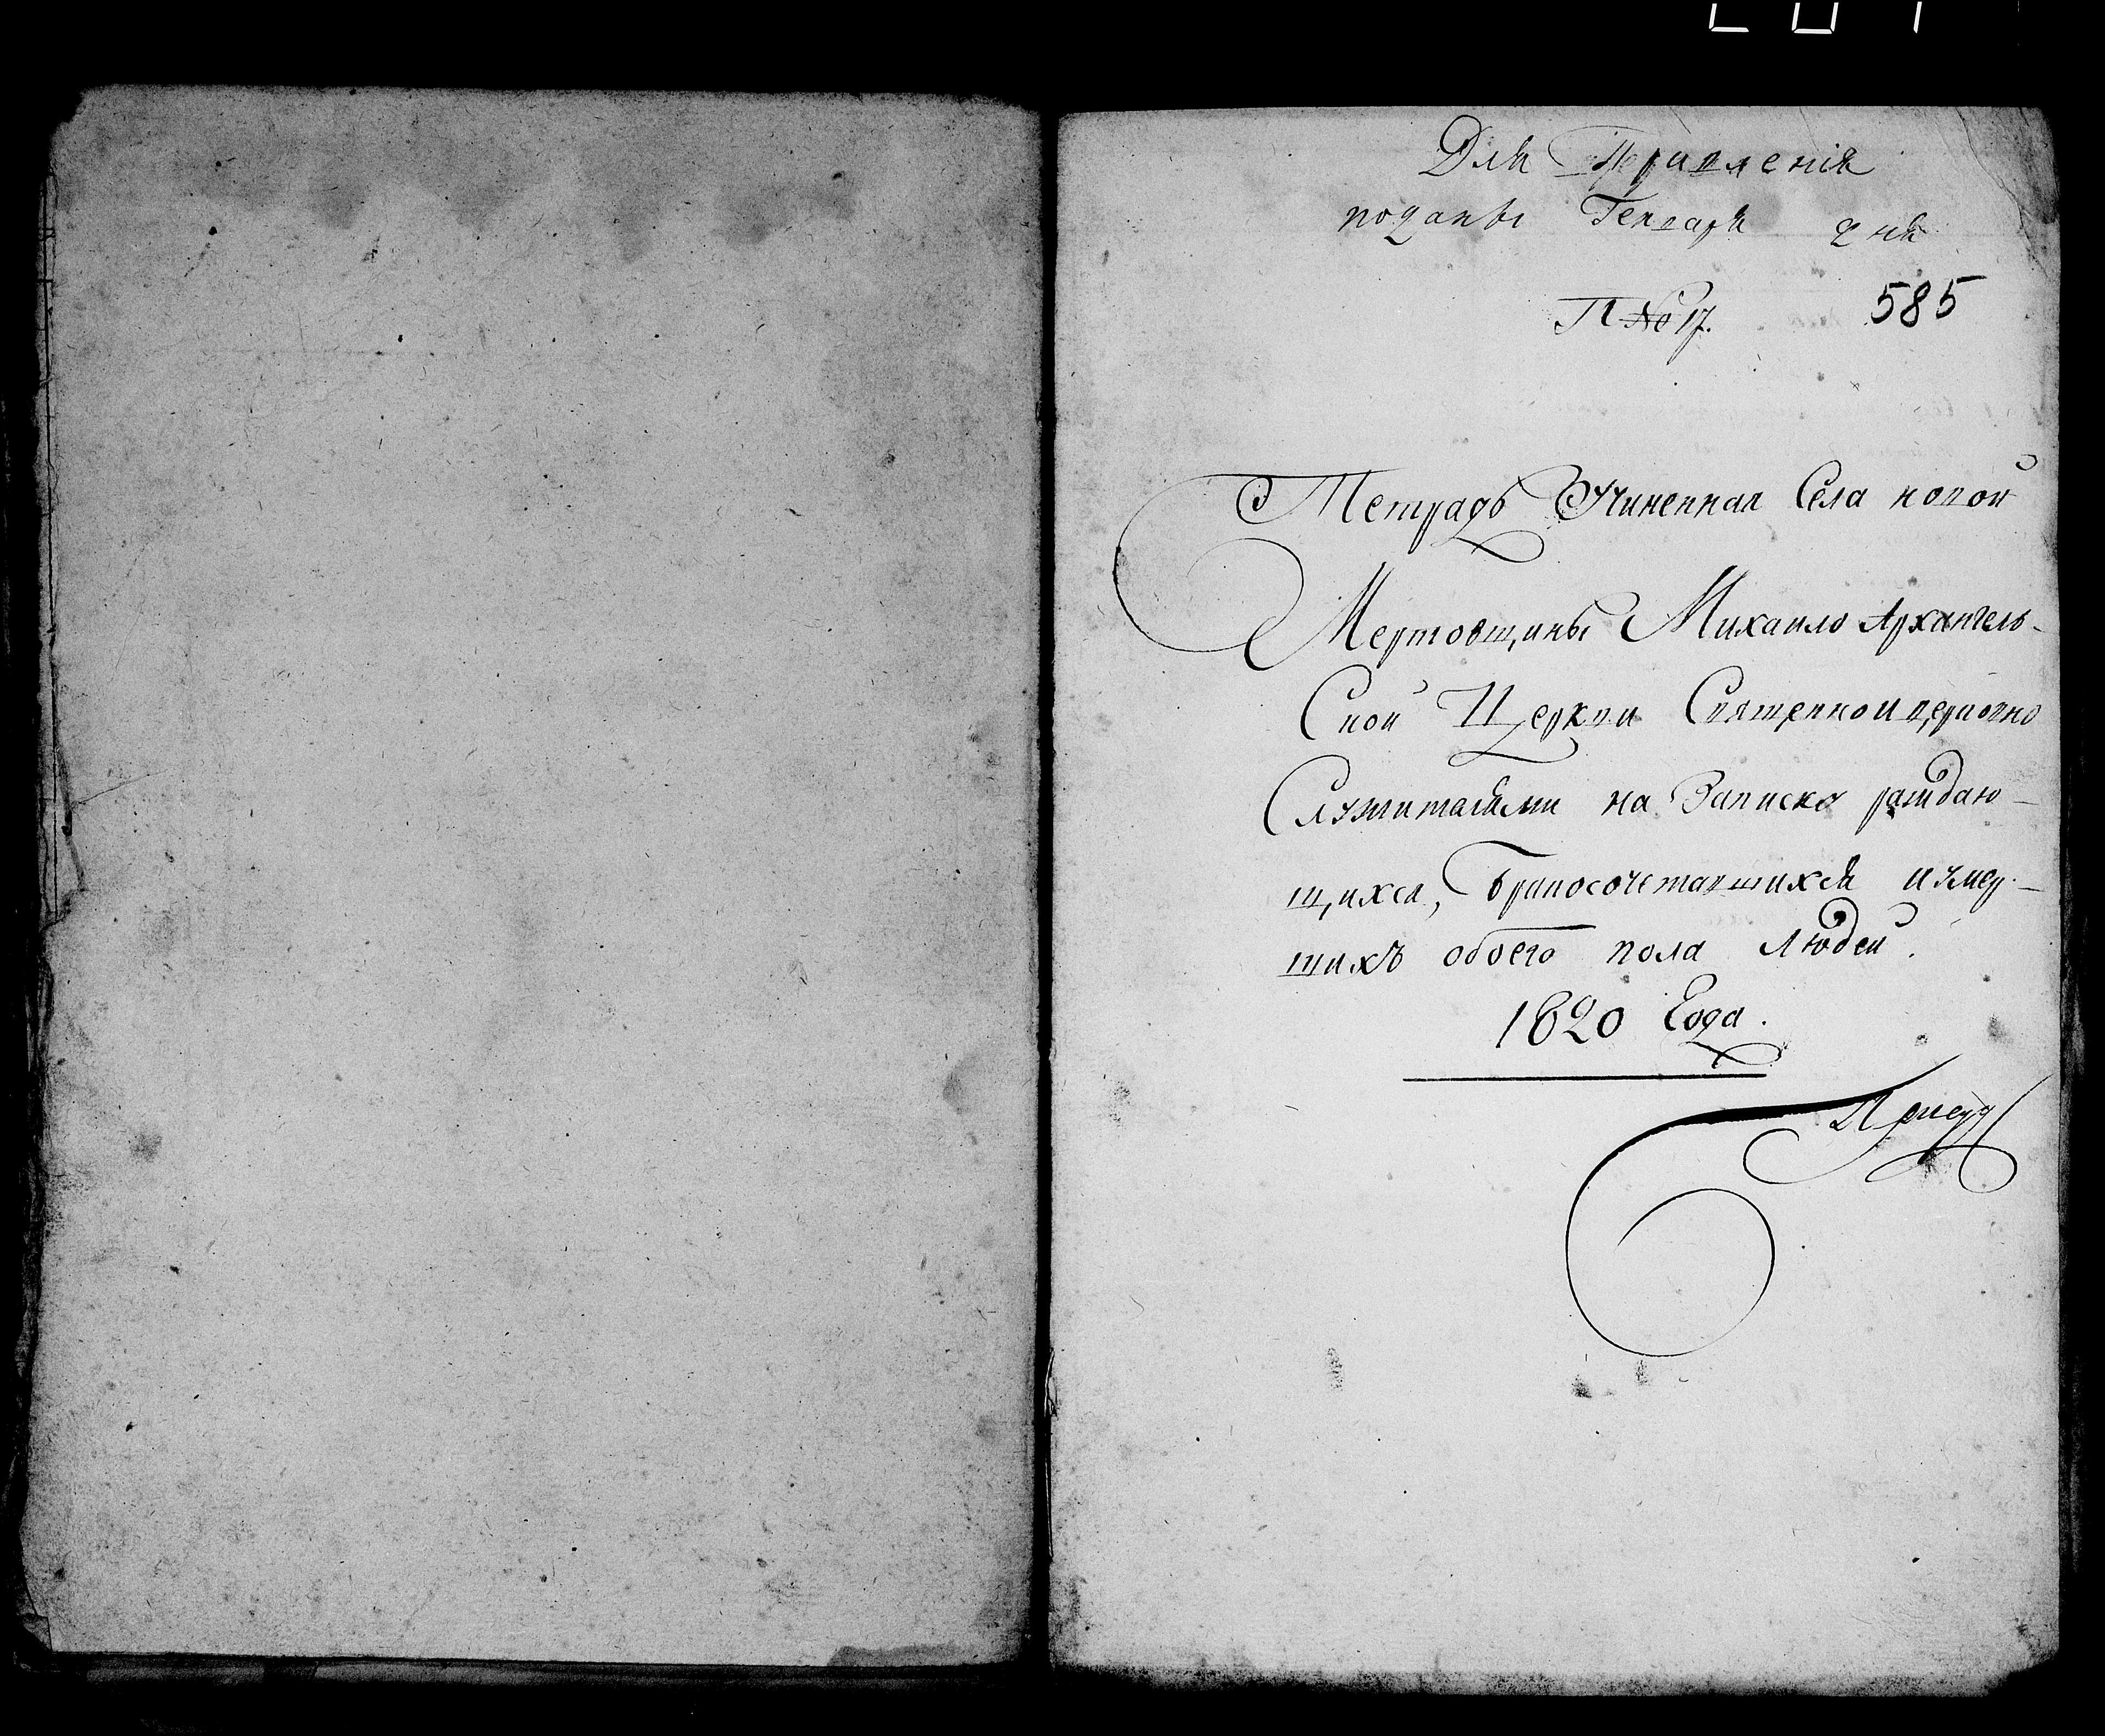 Для Правленія
поданы Генваря дня
П № 17. 585
Тетрадь Учиненная Села новой
Мертовщины Михаило Архангель-
Ской Церкви Священно и церковно
Служителями на Записку раждаю-
щихся, бракосочетавшихся и умер-
шихъ обоего пола людей.
1820 Года.